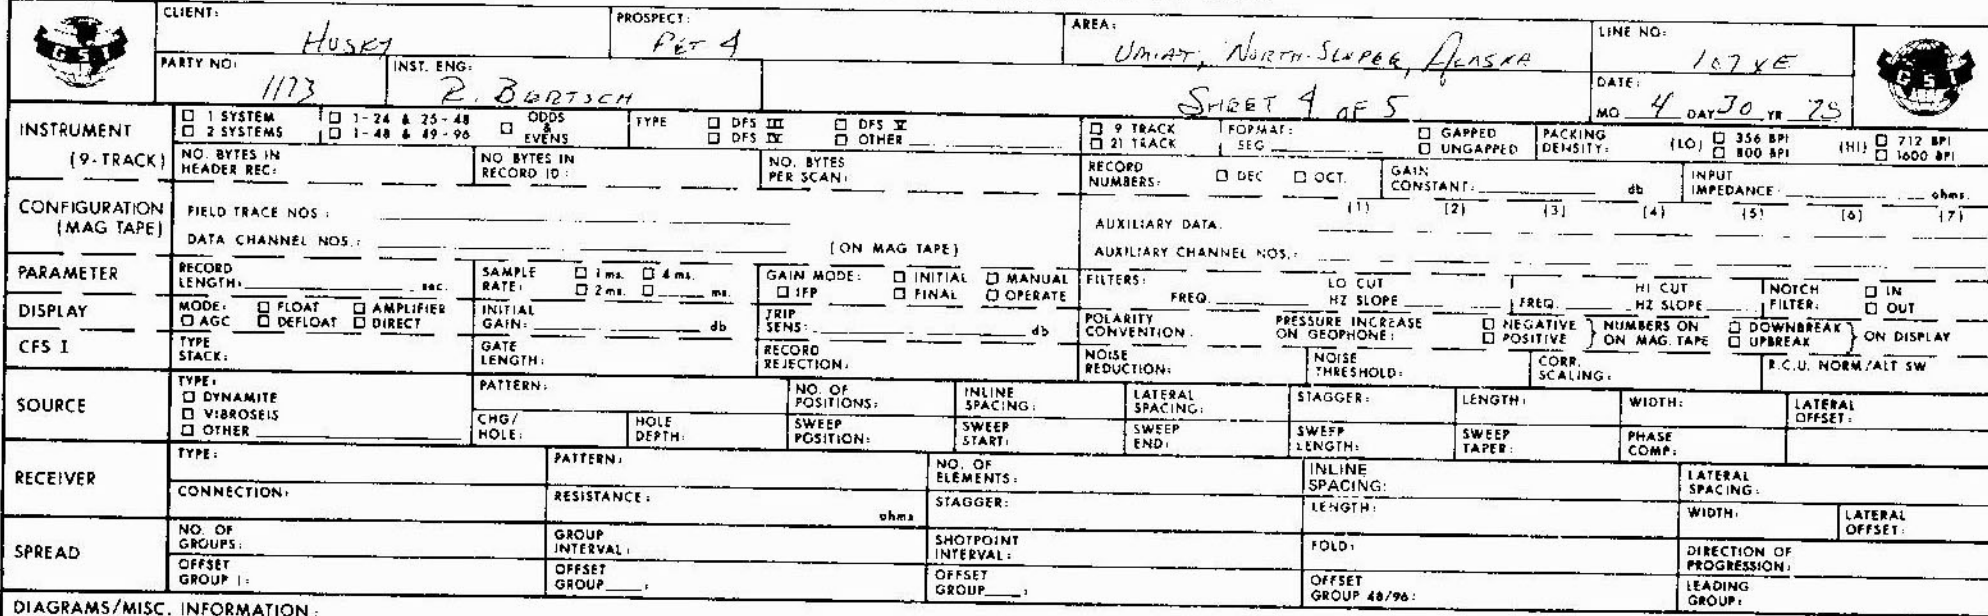 CLIENT: HUSKY PROSPECT: PET 4 AREA: UMIAT, NORTH-SLOPE, ALASKA LINE NO: 107XE
GSI GSI
PARTY NO: 1173 INST. ENG: R. BERTSCH SHEET 4 OF 5 DATE: MO 4 DAY 30 YR 75
INSTRUMENT (9-TRACK)
☐ 1 SYSTEM ☐ 1-24 & 25-48 ☐ ODDS & EVENS TYPE ☐ DFS III ☐ DFS V ☐ 9 TRACK FORMAT: ☐ GAPPED PACKING DENSITY: (LO) ☐ 356 BPI (HI) ☐ 712 BPI
☐ 2 SYSTEMS ☐ 1-48 & 49-96 ☐ DFS IV ☐ OTHER ☐ 21 TRACK SEG ☐ UNGAPPED ☐ 800 BPI ☐ 1600 BPI
NO. BYTES IN HEADER REC: NO BYTES IN RECORD ID: NO. BYTES PER SCAN: RECORD NUMBERS: ☐ DEC ☐ OCT. GAIN CONSTANT: db INPUT IMPEDANCE: ohms.
CONFIGURATION (MAG TAPE)
FIELD TRACE NOS: AUXILIARY DATA: (1) (2) (3) (4) (5) (6) (7)
DATA CHANNEL NOS.: (ON MAG TAPE) AUXILIARY CHANNEL NOS.:
PARAMETER RECORD LENGTH: sec. SAMPLE RATE: ☐ 1 ms. ☐ 4 ms. ☐ 2 ms. ☐ ms. GAIN MODE: ☐ INITIAL ☐ MANUAL ☐ IFP ☐ FINAL ☐ OPERATE FILTERS: LO CUT FREQ. HZ SLOPE HI CUT FREQ. HZ SLOPE NOTCH FILTER: ☐ IN ☐ OUT
DISPLAY MODE: ☐ FLOAT ☐ AMPLIFIER ☐ AGC ☐ DEFLOAT ☐ DIRECT INITIAL GAIN: db TRIP SENS: db POLARITY CONVENTION: PRESSURE INCREASE ON GEOPHONE: ☐ NEGATIVE ☐ POSITIVE } NUMBERS ON ON MAG. TAPE ☐ DOWNBREAK ☐ UPBREAK } ON DISPLAY
CFS I TYPE STACK: GATE LENGTH: RECORD REJECTION: NOISE REDUCTION: NOISE THRESHOLD: CORR. SCALING: R.C.U. NORM/ALT SW
SOURCE TYPE: ☐ DYNAMITE ☐ VIBROSEIS ☐ OTHER
PATTERN: NO. OF POSITIONS: INLINE SPACING: LATERAL SPACING: STAGGER: LENGTH: WIDTH: LATERAL OFFSET:
CHG/HOLE: HOLE DEPTH: SWEEP POSITION: SWEEP START: SWEEP END: SWEEP LENGTH: SWEEP TAPER: PHASE COMP:
RECEIVER TYPE: PATTERN: NO. OF ELEMENTS: INLINE SPACING: LATERAL SPACING:
CONNECTION: RESISTANCE: ohms STAGGER: LENGTH: WIDTH: LATERAL OFFSET:
SPREAD NO. OF GROUPS: GROUP INTERVAL: SHOTPOINT INTERVAL: FOLD: DIRECTION OF PROGRESSION:
OFFSET GROUP 1: OFFSET GROUP : OFFSET GROUP : OFFSET GROUP 48/96: LEADING GROUP:
DIAGRAMS/MISC. INFORMATION: